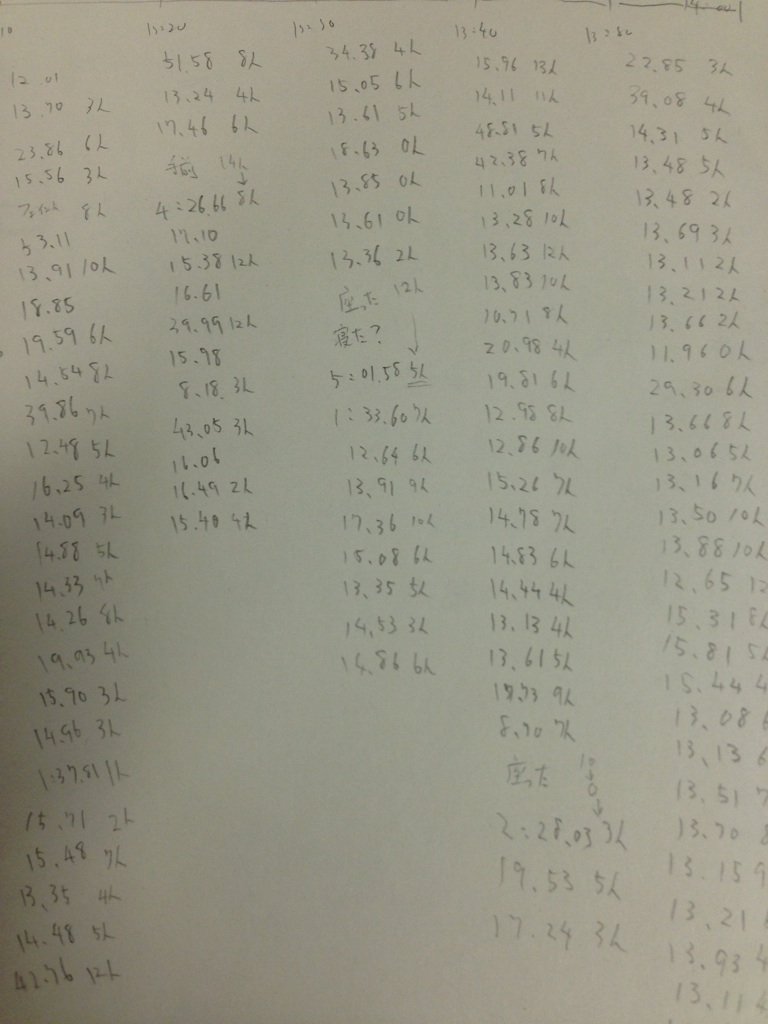 10
12.01
13.70 3人
23.86 6人
15.56 3人
8人
53.11
13.91 10人
18.85
19.59 6人
14.54 8人
39.86 7人
12.48 5人
16.25 4人
14.09 3人
14.88 5人
14.33 4人
14.26 8人
19.93 4人
15.90 3人
14.96 3人
1:37.81 1人
15.71 2人
15.48 7人
13.35 4人
14.48 5人
42.76 12人
13:20
51.58 8人
13.24 4人
17.46 6人
14人
↓
4:26.66 8人
17.10
15.38 12人
16.61
39.99 12人
15.98
8.18 3人
43.05 3人
16.06
16.49 2人
15.40 4人
13:30
34.38 4人
15.05 6人
13.61 5人
18.63 0人
13.85 0人
13.61 0人
13.36 2人
座った 12人
寝た? ↓
5:01.58 5人
1:33.60 7人
12.64 6人
13.91 9人
17.36 10人
15.08 6人
13.35 5人
14.53 3人
14.86 6人
13:40
15.96 13人
14.11 11人
48.81 5人
42.38 7人
11.01 8人
13.28 10人
13.63 12人
13.83 10人
10.71 8人
20.98 4人
19.81 6人
12.98 8人
12.86 10人
15.26 7人
14.78 7人
14.83 6人
14.44 4人
13.13 4人
13.61 5人
9人
8.70 7人
座った 10
↓
0
↓
2:28.03 3人
19.53 5人
17.24 3人
14:00
13:50
22.85 3人
39.08 4人
14.31 5人
13.48 5人
13.48 2人
13.69 3人
13.11 2人
13.21 2人
13.66 2人
11.96 0人
29.30 6人
13.66 8人
13.06 5人
13.16 7人
13.50 10人
13.88 10人
12.65 12
15.31 8人
15.81 5人
15.44 4
13.08 6
13.13 6
13.51 7
13.70 8
13.15 9
13.21
13.93 4
13.11 4